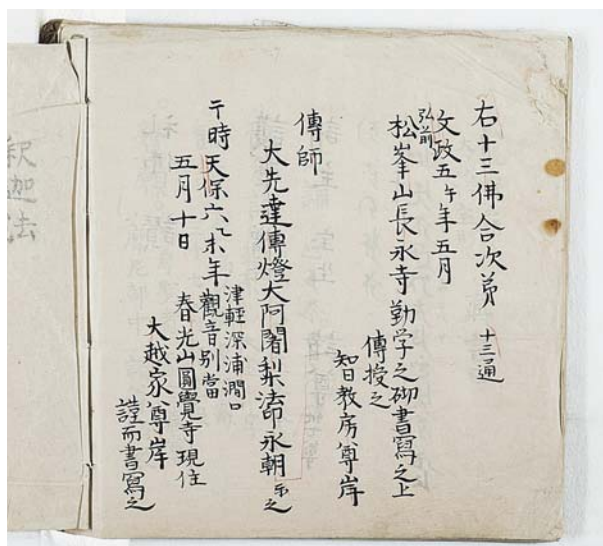 右十三佛合次第 十三通
文政五午年五月
弘前
松峯山長永寺勤学之砌書寫之上
傳授之
知日教房尊岸
傳師
大先達傳燈大阿闍梨法印永朝示之
于時天保六乙未年
津軽深浦澗口
觀音別當
五月十日
春光山圓覺寺現住
大越家尊岸
謹而書寫之
釈迦法